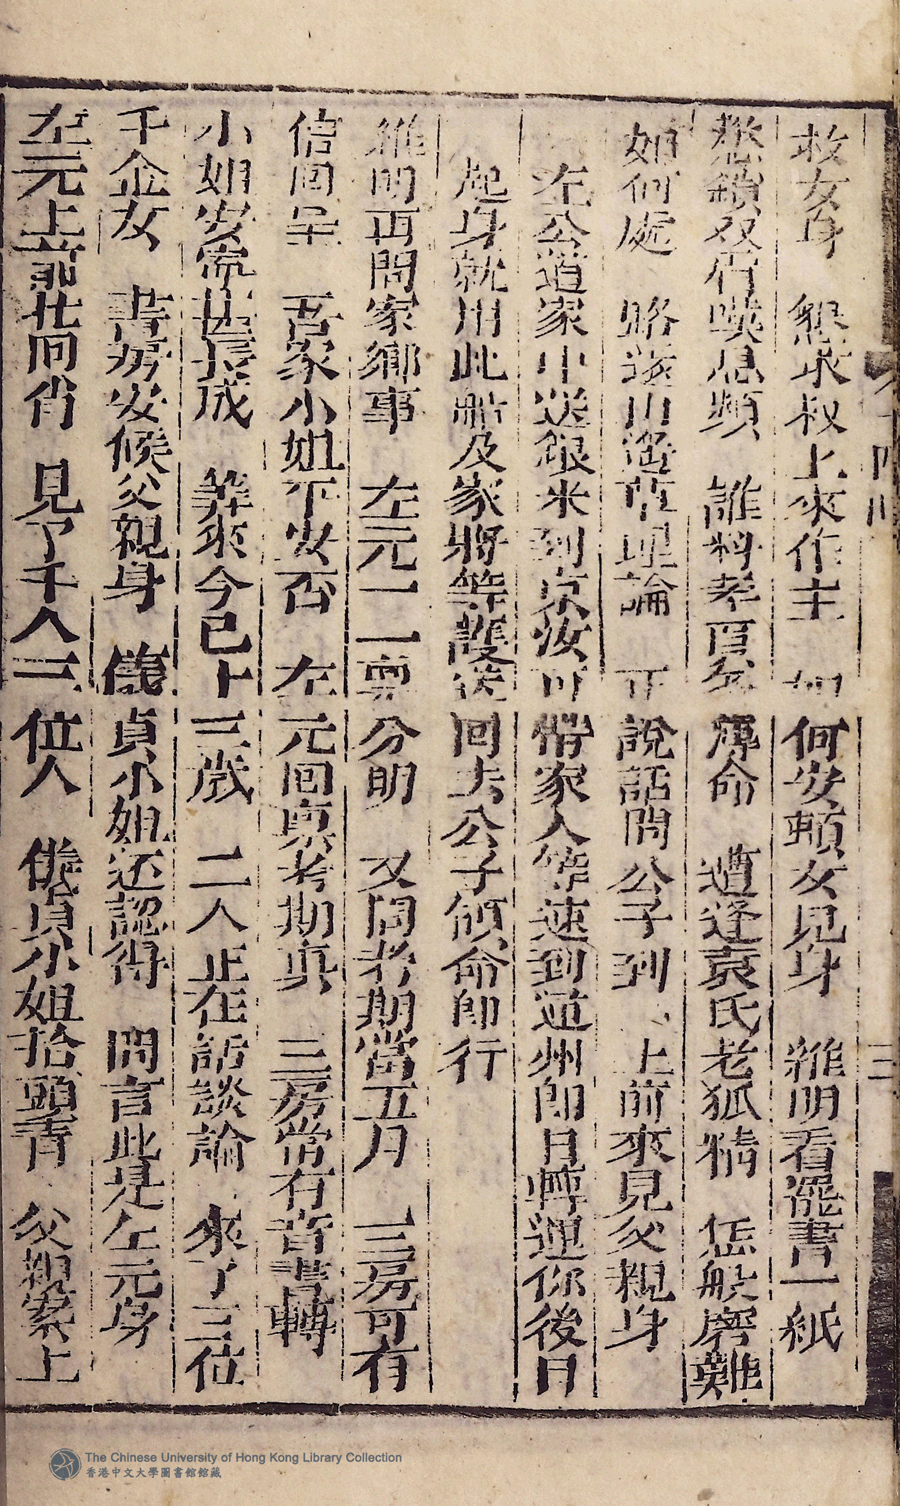 救女身　懇求叔上來作主　如何安頓女兒身　維明看罷書一紙
愁鎖双眉嘆息頻　誰料孝貞多薄命　遭逢袁氏老狐精　恁般磨難
如何處　路遠山遙草理論　正說話間公子到　上前來見父親身
左公道家中送銀米到京汝可帶家人等速到通州即日轉運你後日
起身就用此船及家將等護送回去公子領命即行
維明再問家鄉事　左元一一禀分明　又問考期當五月　三房可有
信回呈　吾家小姐平安否　左元回禀考期真　三房常有音書轉
小姐安常甚長成　算來今已十三歲　二人正在話談論　來了三位
千金女　書房安候父親身　儀貞小姐还認得　問言此是左元身
左元上前廿問肖　見了千人三位人　儀貞小姐抬頭看　父親案上
卷十四
三
The Chinese University of Hong Kong Library Collection
香港中文大學圖書館館藏